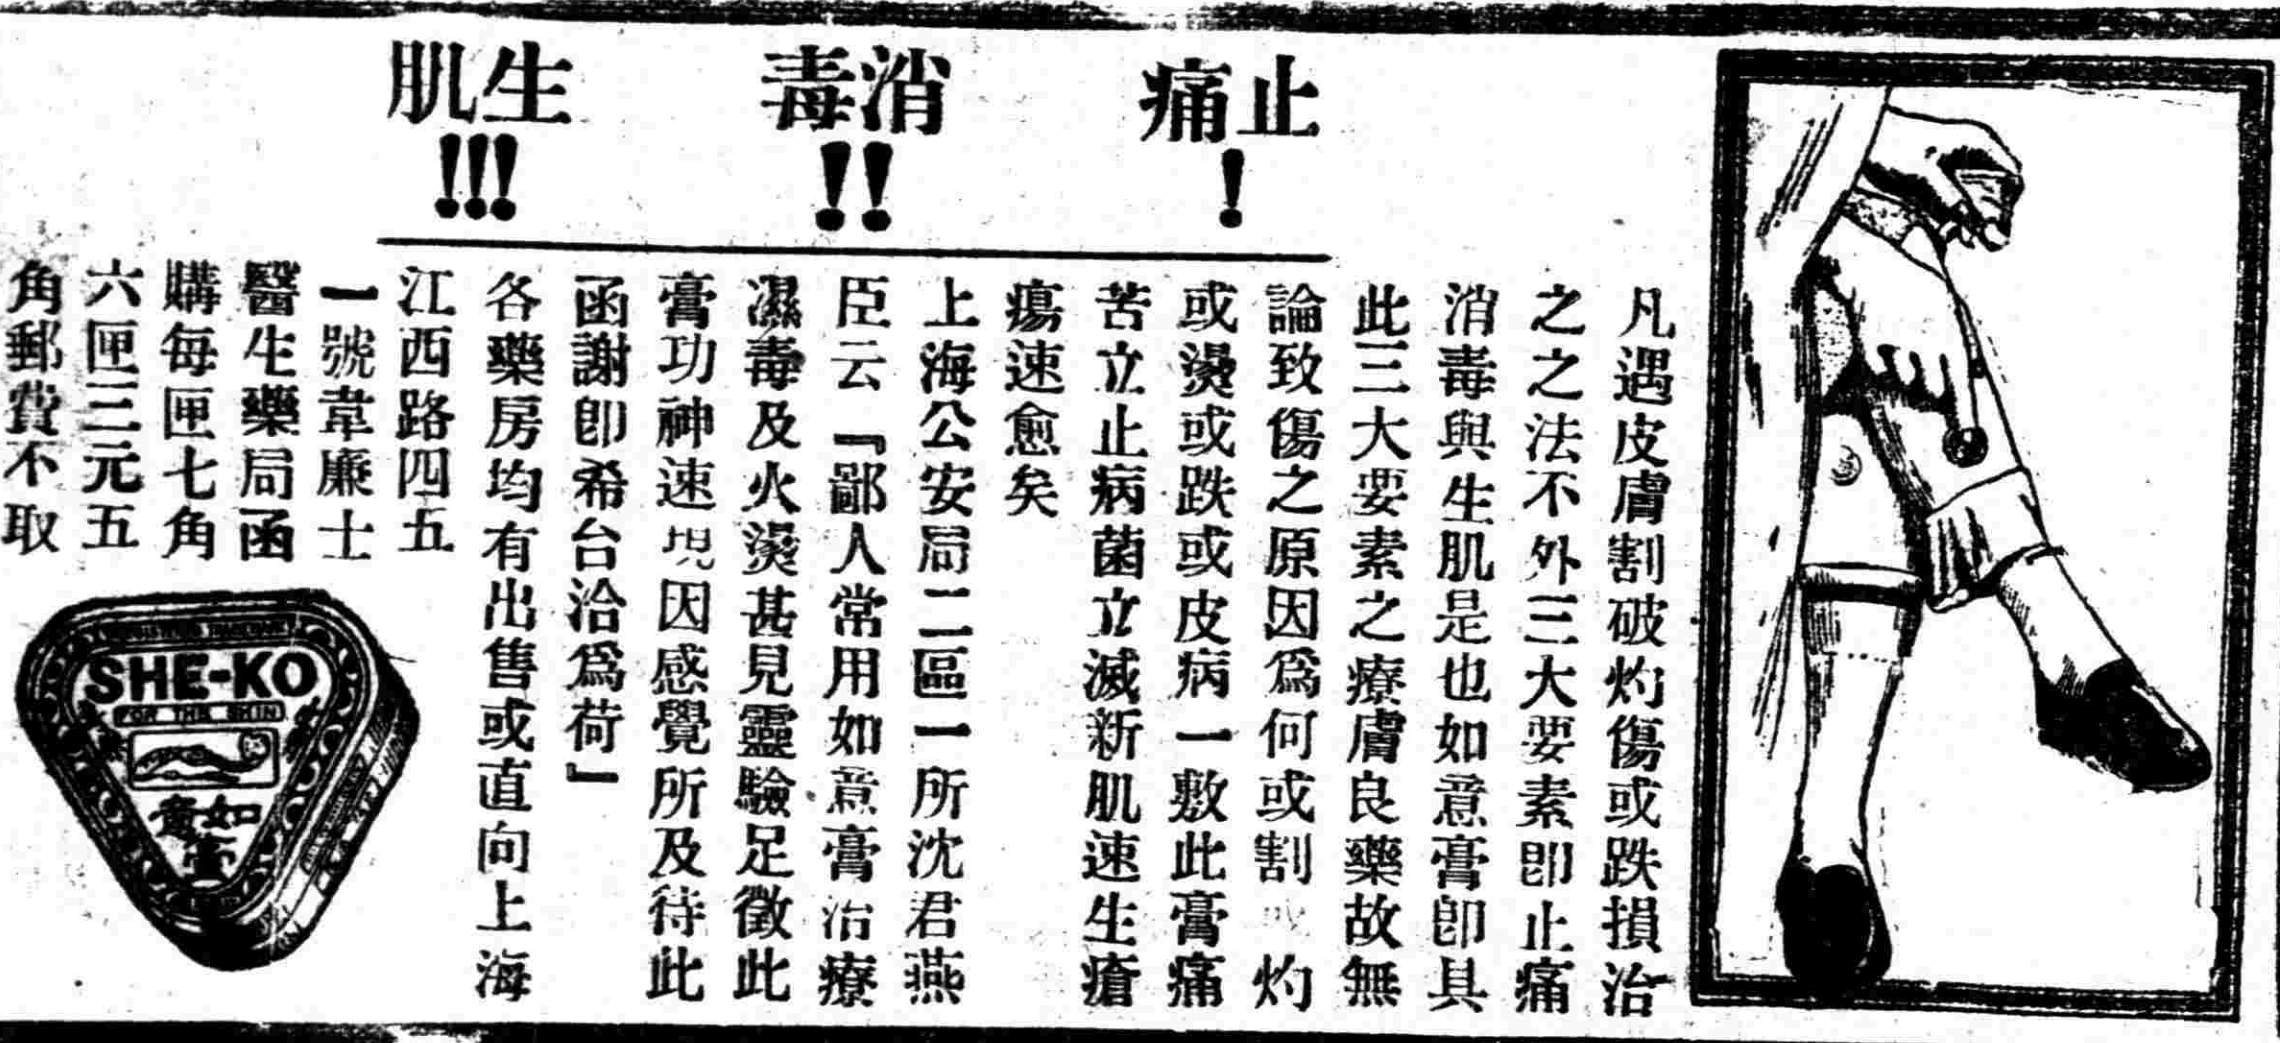 止痛!
消毒!!
生肌!!!
凡遇皮膚割破灼傷或跌損治
之之法不外三大要素即止痛
消毒與生肌是也如意膏即具
此三大要素之療膚良藥故無
論致傷之原因爲何或割或灼
或燙或跌或皮病一敷此膏痛
苦立止病菌立滅新肌速生瘡
瘍速愈矣
上海公安局二區一所沈君燕
臣云『鄙人常用如意膏治療
濕毒及火燙甚見靈驗足徵此
膏功神速現因感覺所及待此
函謝即希台洽爲荷』
各藥房均有出售或直向上海
江西路四五
一號韋廉士
醫生藥局函
購每匣七角
六匣三元五
角郵費不取
SHE-KO
FOR THE SKIN
如意
膏